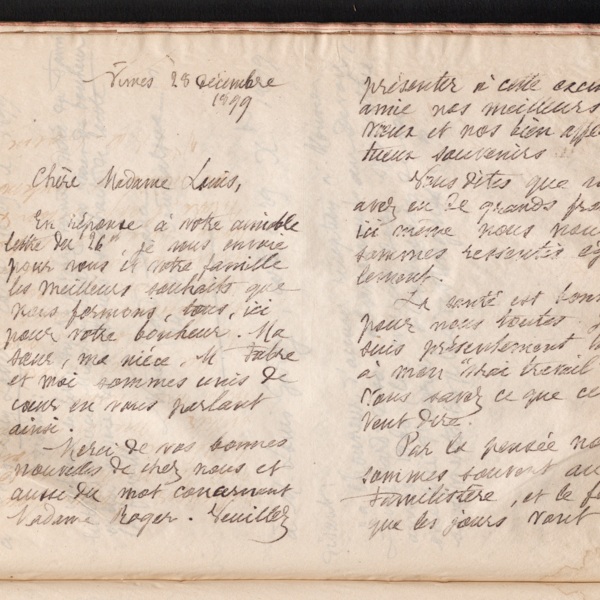 Nimes 28 décembre
1899
Chère Madame Louis,
En réponse à votre aimable
lettre du 26", je vous envoie
pour vous et votre famille
les meilleurs souhaits que
nous formons, tous, ici
pour votre bonheur. Ma
sœur, ma nièce, M Fabre
et moi sommes unis de
cœur en vous parlant
ainsi.
Merci de vos bonnes
nouvelles de chez vous et
aussi du mot concernant
Madame Roger. Veuillez
présenter à cette
amie nos meilleurs
vœux et nos bien affec
tueux souvenirs
Vous dites que
avez eu de grands
ici même nous nous
sommes ressentis
lement.
La santé est
pour nous toutes.
suis présentement
à mon vrai travail
Vous savez ce que
veut dire.
Par la pensée
sommes souvent au
Familistère, et le
que les jours vont